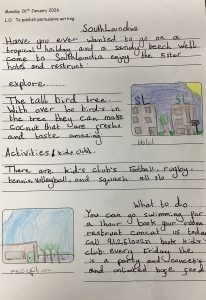 Monday 26th January 2026
L.O. To publish persuasive writing
Southlandia
Have you ever wanted to go on a
tropical holiday and a sandy beech well
come to Southlandia enjoy the 5 star
hotel and restrunt.
explore
The tall bird tree
With over 60 birds in
the tree they can make
coconut that are freshe
and taste amazing
Hotel
Activities / kids club
There are kid's club's football, rugby,
tennis, volleyball, and squash all 110
What to do
You can go swimming for
a 1 hour book your room
restrunt concat us today
call
book kids
club every Friday the
is a party and
and unlimited
food
reception